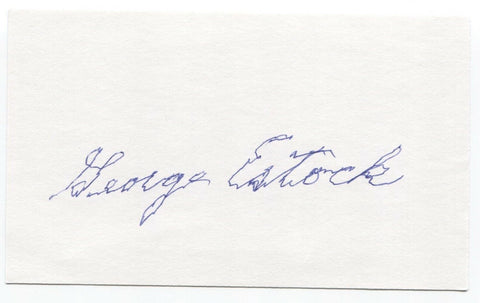 George Estock